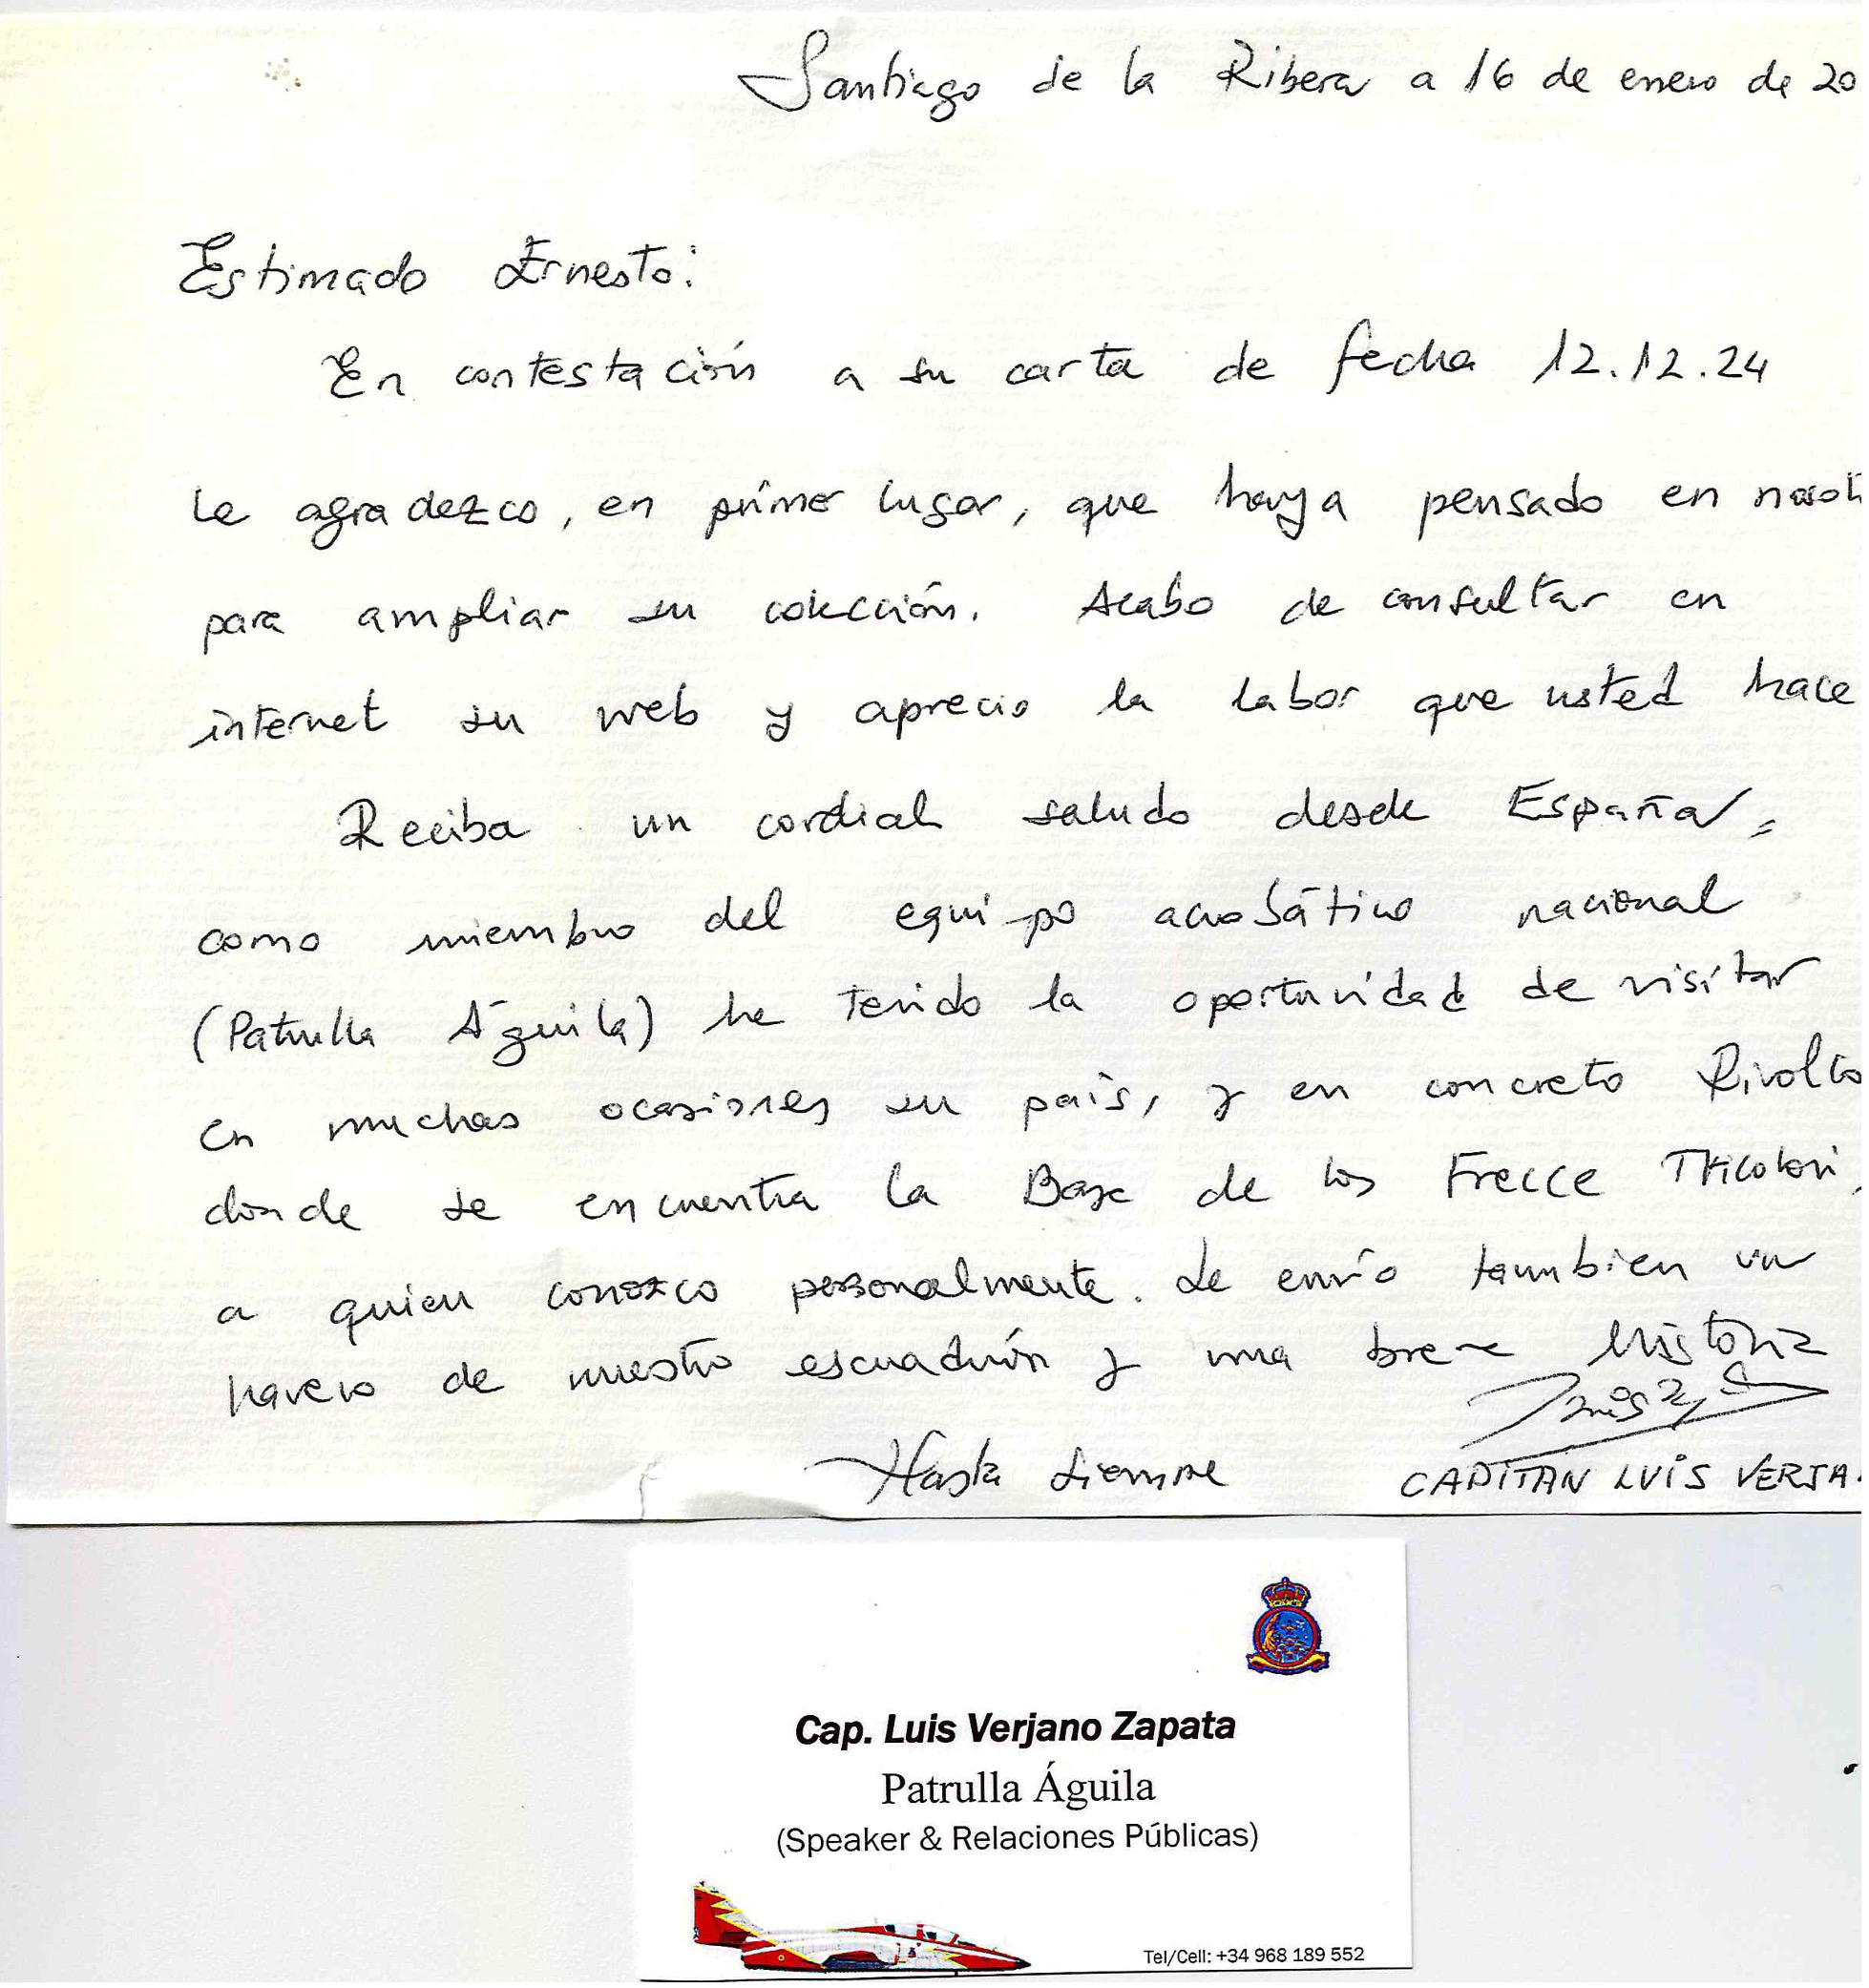 Santiago de la Ribera a 16 de enero de 20
Estimado Ernesto:
En contestación a su carta de fecha 12.12.24
le agradezco, en primer lugar, que haya pensado en nosotr
para ampliar su colección. Acabo de consultar en
internet su web y aprecio la labor que usted hace
Reciba un cordial saludo desde España,
como miembro del equipo acrobático nacional
(Patrulla Águila) he tenido la oportunidad de visitar
en muchas ocasiones su país, y en concreto Rivolto
donde se encuentra la Base de los Frecce Tricolori,
a quien conozco personalmente. Le envío tambien un
llavero de nuestro escuadrón y una breve historia
Hasta siempre
CAPITAN LUIS VERJA
Cap. Luis Verjano Zapata
Patrulla Águila
(Speaker & Relaciones Públicas)
Tel/Cell: +34 968 189 552